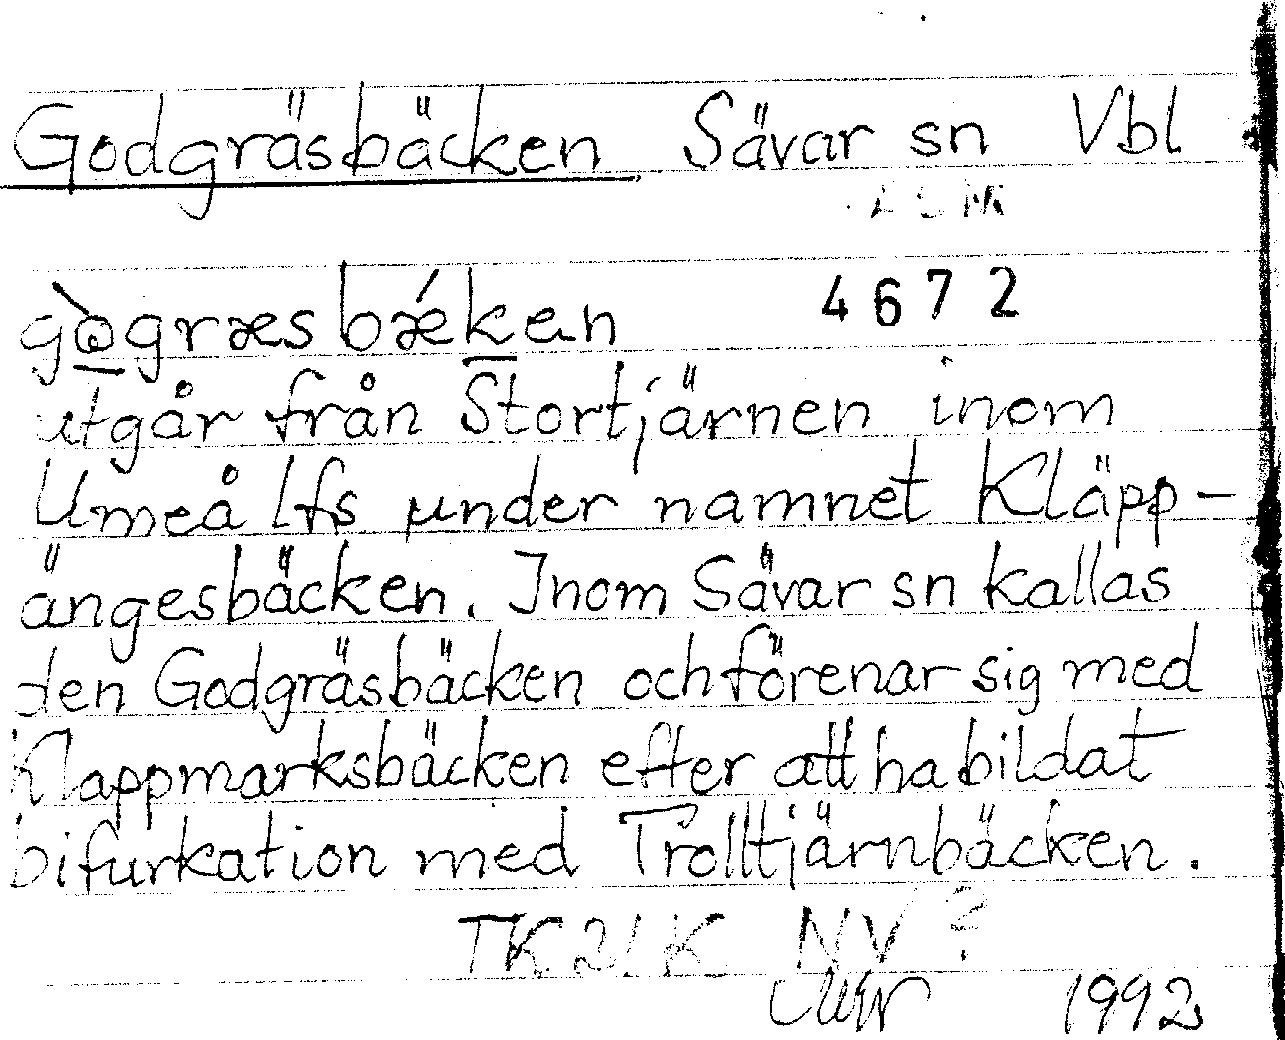 Godgräsbäcken Sävar sn Vbl
4672
gògræsbǽken
utgår från Stortjärnen inom
Umeå lfs under namnet Kläpp-
ängesbäcken. Inom Sävar sn kallas
den Godgräsbäcken och förenar sig med
Klappmarksbäcken efter att ha bildat
bifurkation med Trolltjärnbäcken.
TK 21 K NV?
1992